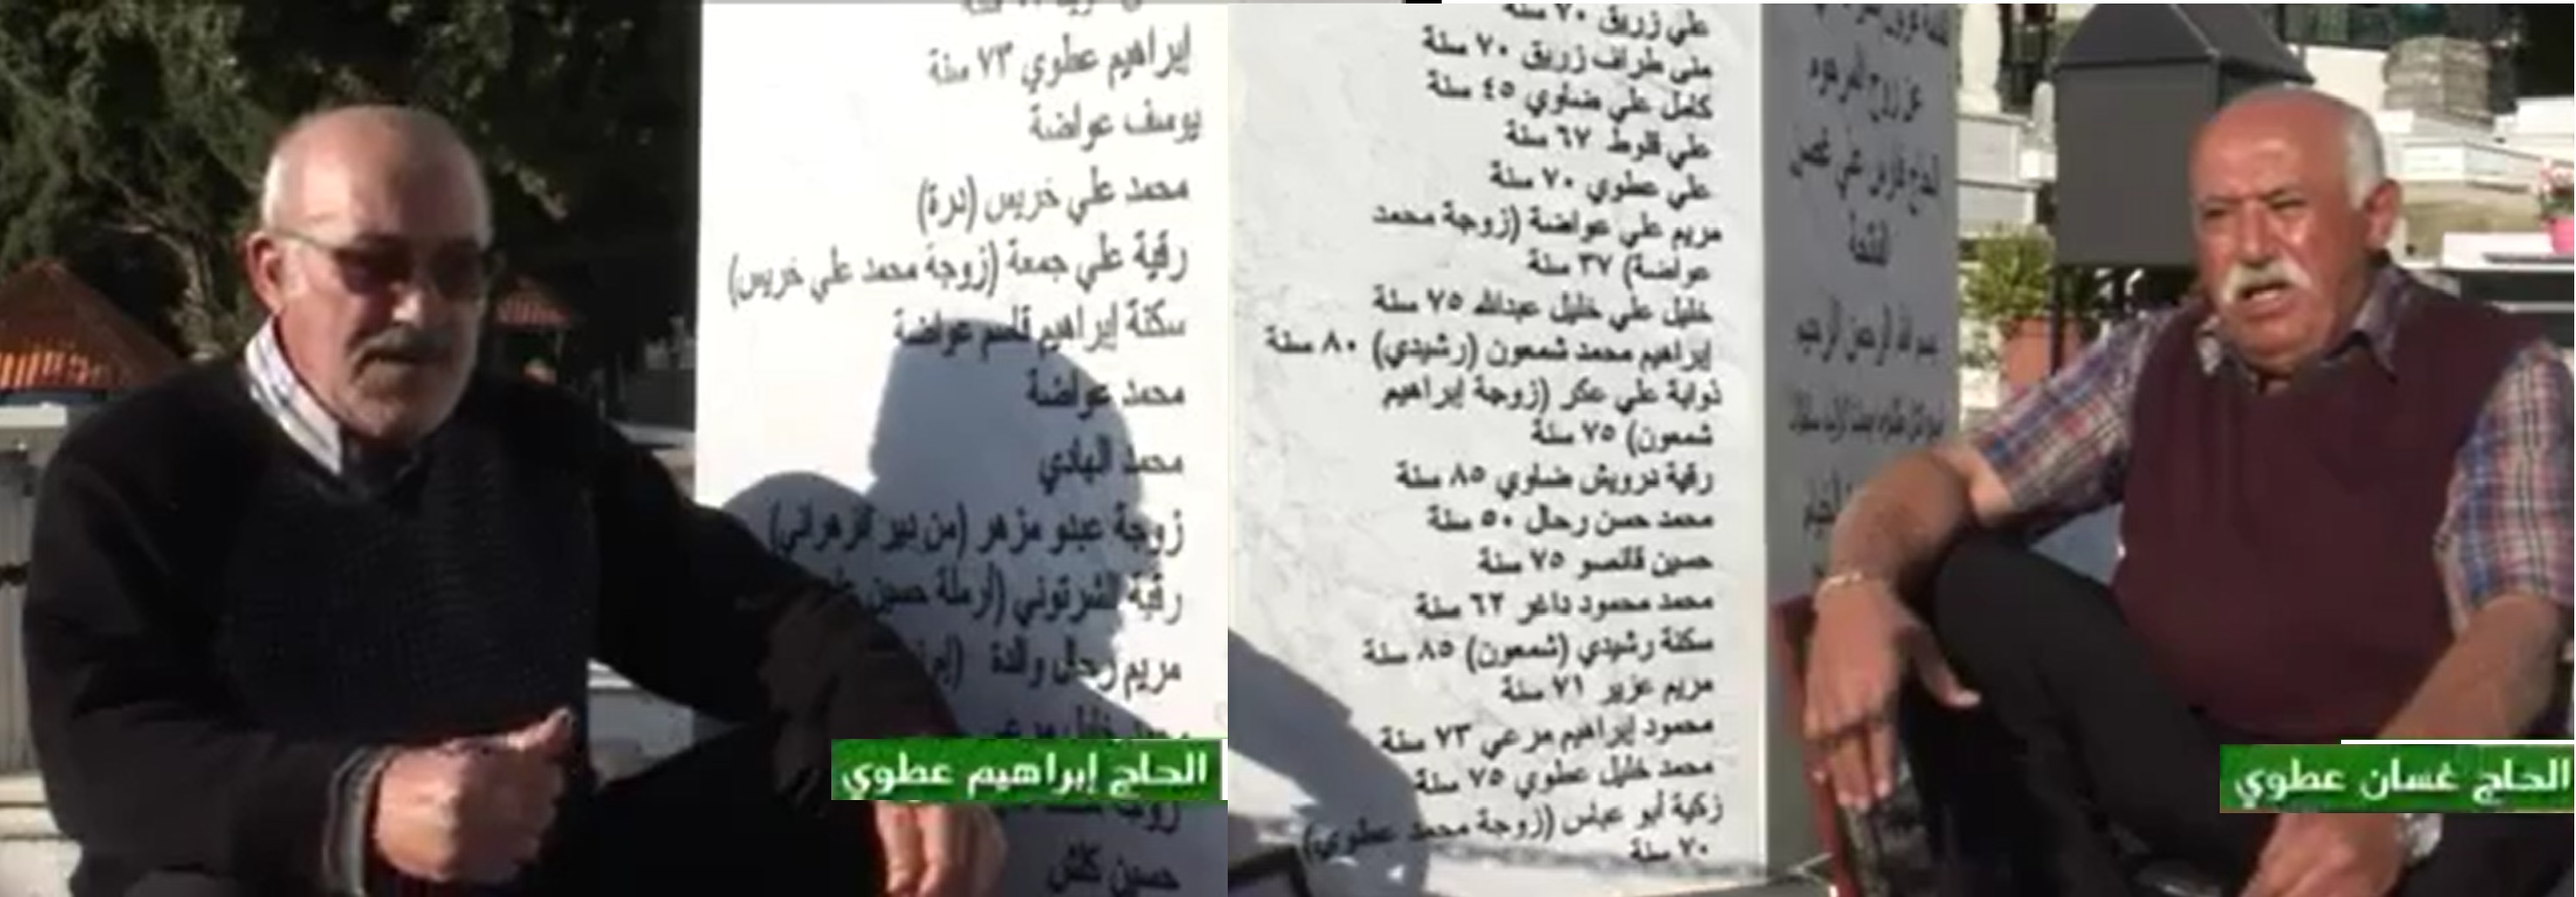 إبراهيم عطوي ٧٣ سنة
يوسف عواضة
محمد علي خريس (درة)
رقية علي جمعة (زوجة محمد علي خريس)
سكنة إبراهيم قاسم عواضة
محمد عواضة
محمد الهادي
زوجة عبدو مزهر (من دير الزهراني)
رقية الشرتوني (أرملة حسين
مريم رحال والدة
حسين كلش
الحاج إبراهيم عطوي
علي زريق ٧٠ سنة
منى طراف زريق ٧٠ سنة
كامل علي ضاوي ٤٥ سنة
علي قلوط ٦٧ سنة
علي عطوي ٧٠ سنة
مريم علي عواضة (زوجة محمد
عواضة) ٣٧ سنة
خليل علي خليل عبدالله ٧٥ سنة
إبراهيم محمد شمعون (رشيدي) ٨٠ سنة
ذوابة علي عكر (زوجة إبراهيم
شمعون) ٧٥ سنة
رقية درويش ضاوي ٨٥ سنة
محمد حسن رحال ٥٠ سنة
حسين قانصو ٧٥ سنة
محمد محمود داغر ٦٢ سنة
سكنة رشيدي (شمعون) ٨٥ سنة
مريم عزير ٧١ سنة
محمود إبراهيم مرعي ٧٣ سنة
محمد خليل عطوي ٧٥ سنة
زكية أبو عباس (زوجة محمد عطوي)
٧٠ سنة
عن روح المرحوم
الحاج فارس علي
الفاتحة
بسم الله الرحمن الرحيم
الحاج غسان عطوي